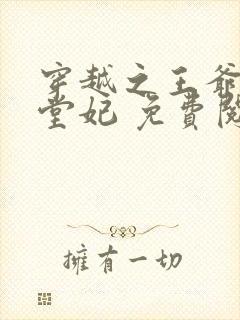 穿越之王爺
堂妃 免費閱
擁有一切